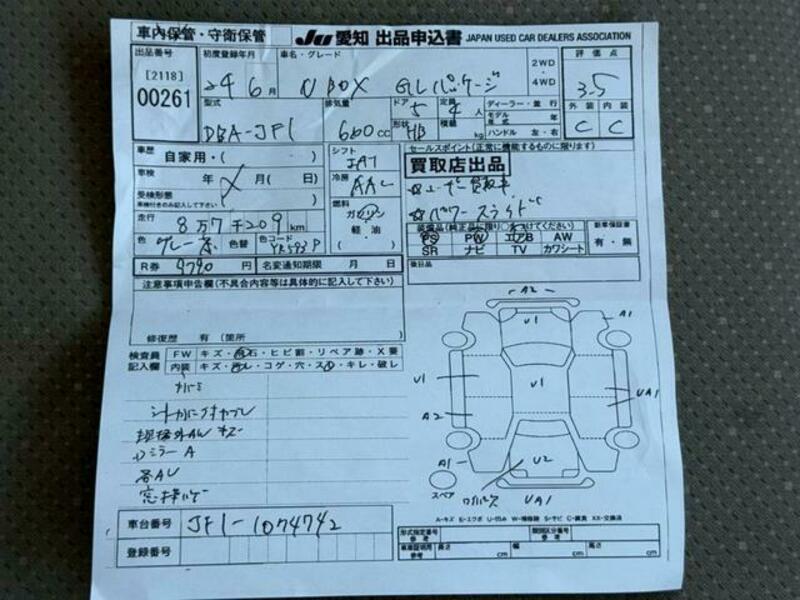 車内保管・守衛保管
JU 愛知 出品申込書 JAPAN USED CAR DEALERS ASSOCIATION
出品番号 初度登録年月 車名・グレード 2WD ・ 4WD 評価点
[2118] 00261 24 6月 N BOX GLパッケージ 3.5
型式 排気量 ドア 定員 ディーラー・並行 外装 内装
DBA-JF1 660cc 5 4人 形状 HB 積載 kg モデル年式 年 ハンドル 左・右 C C
車歴 自家用・( ) シフト セールスポイント(正常に機能するものに限ります)
IAT
車検 年 月( 日) 冷房 AAC 買取店出品
受検形態
車検付きのみ記入して下さい
燃料 ガソリン 軽・油 ( )
☆ユーザー買取車
☆パワースライド
走行 8万7千209km
色 色替 色コード YR593P
装備品(純正品に限り○をつけてください) 新車保証書
PS PW エアB AW 有・無
SR ナビ TV カワシート
R券 9790円 名変通知期限 月 日 後日品
注意事項申告欄(不具合内容等は具体的に記入して下さい)
修復歴 有(箇所
検査員記入欄 FW キズ・飛石・ヒビ割・リペア跡・X要
内装 キズ・汚レ・コゲ・穴・スレ・キレ・破レ
規格外AW キズ
ミラーA
各AU
A2
U1 A1
U1 U1 UA1
A2
A1 U2
スペア UA1
A-キズ E-エクボ U-凹み W-補修跡 S-サビ C-腐食 XX-交換済
車台番号 JF1-1074742
登録番号
形式指定番号 参考 類別区分番号 参考
車庫証明用 参考 長さ cm 幅 cm 高さ cm